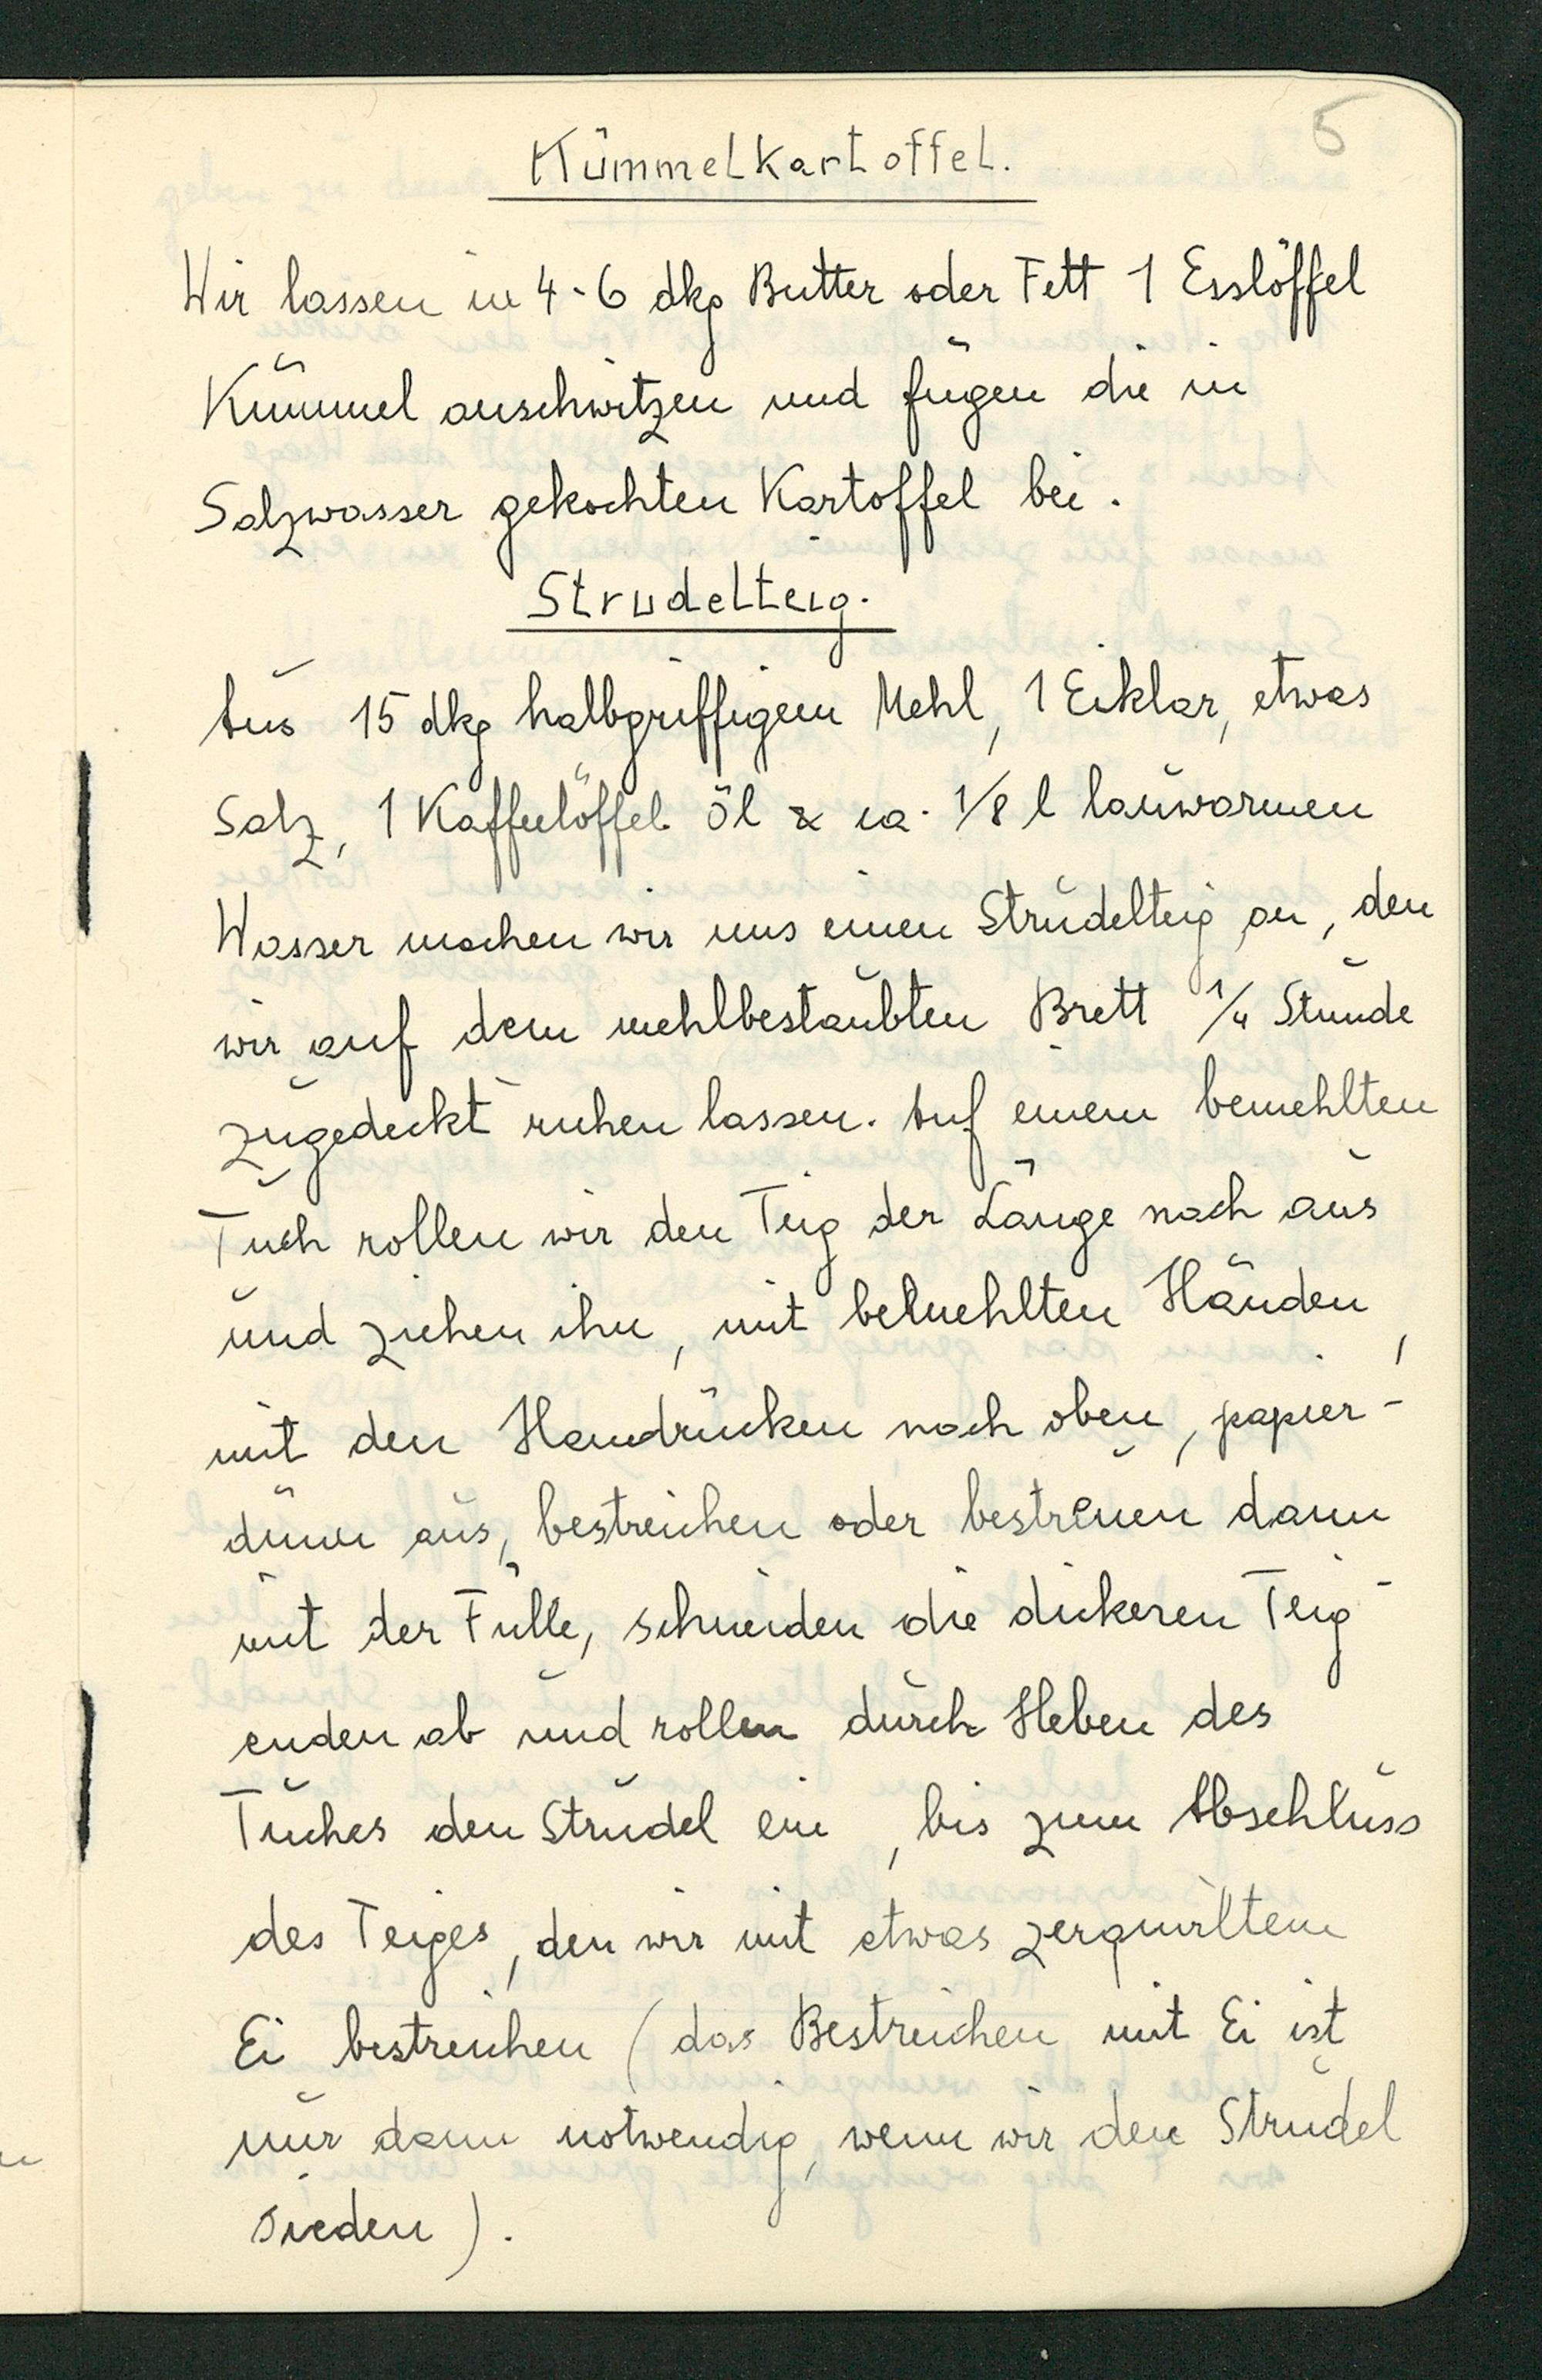 5
Kümmelkartoffel.
Wir lassen in 4-6 dkg Butter oder Fett 1 Esslöffel
Kümmel anschwitzen und fügen die in
Salzwasser gekochten Kartoffel bei.
Strudelteig.
Aus 15 dkg halbgriffigem Mehl, 1 Eiklar, etwas
Salz, 1 Kaffeelöffel Öl & ca. 1/8 l lauwarmen
Wasser machen wir uns einen Strudelteig an, den
wir auf dem mehlbestaubten Brett 1/4 Stunde
zugedeckt ruhen lassen. Auf einem bemehlten
Tuch rollen wir den Teig der Länge nach aus
und ziehen ihn, mit bemehlten Händen,
mit den Handrücken nach oben, papier-
dünn aus, bestreichen oder bestreuen dann
mit der Fülle, schneiden die dickeren Teig-
enden ab und rollen durch Heben des
Tuches den Strudel ein, bis zum Abschluss
des Teiges, den wir mit etwas zerquirltem
Ei bestreichen (das Bestreichen mit Ei ist
nur dann notwendig, wenn wir den Strudel
sieden).